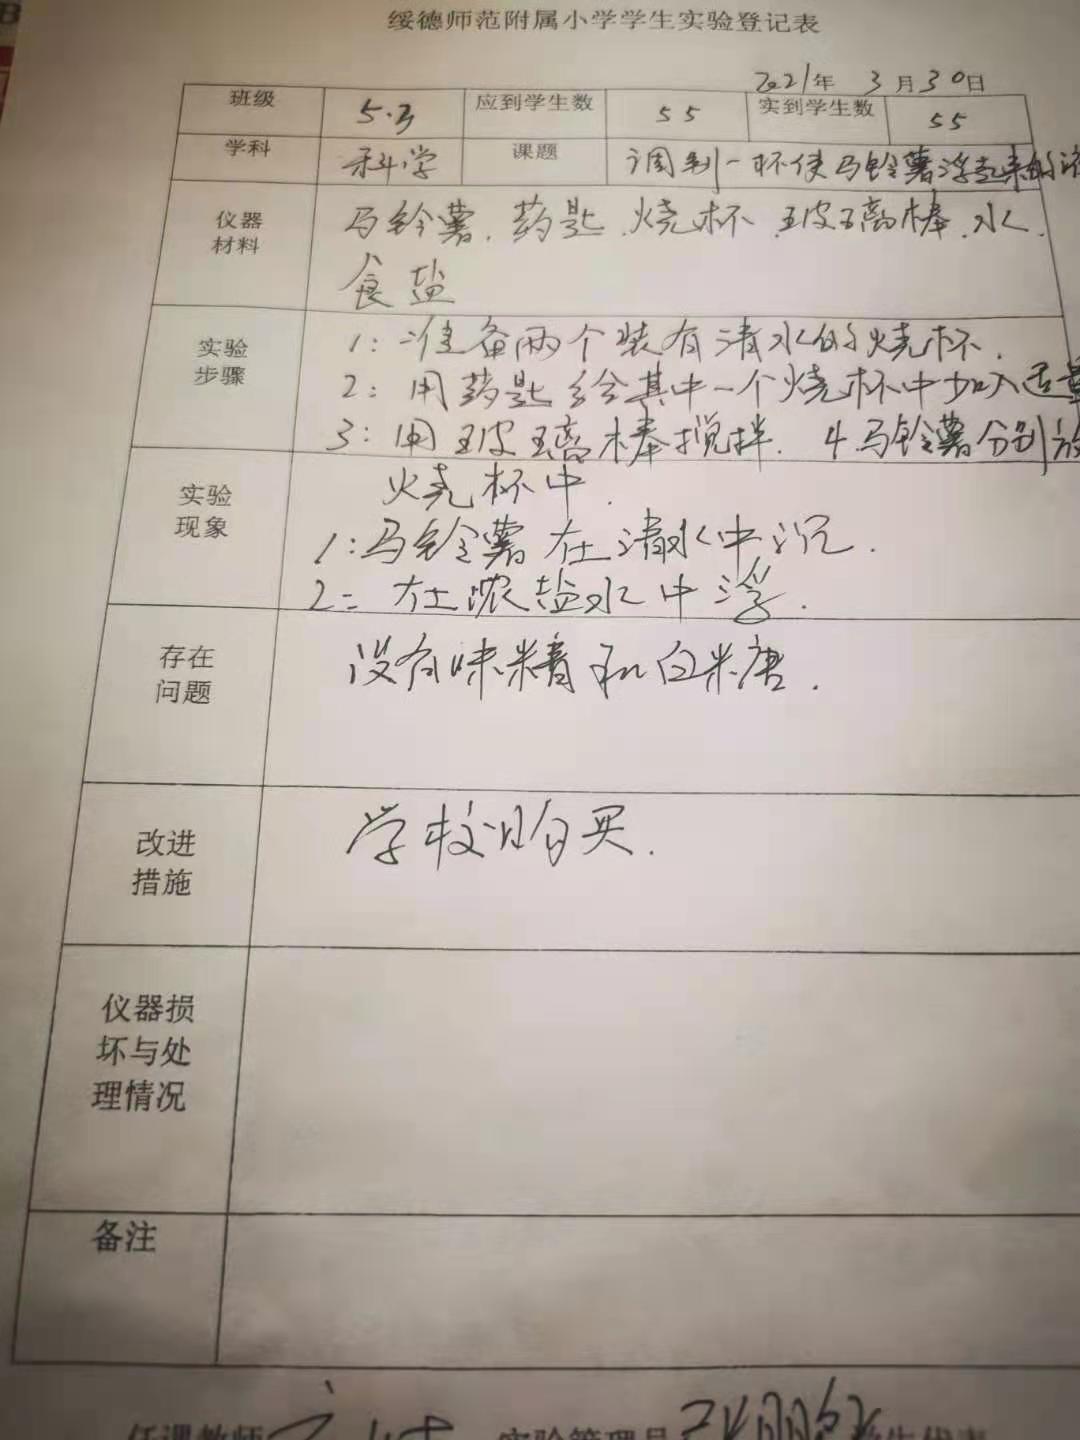 绥德师范附属小学学生实验登记表
2021年 3月30日
班级 5.3 应到学生数 55 实到学生数 55
学科 科学 课题 调制一杯使马铃薯浮起来的
仪器材料 马铃薯、药匙、烧杯、玻璃棒、水、
食盐
实验步骤 1:准备两个装有清水的烧杯.
2:用药匙给其中一个烧杯中加入适量
3:用玻璃棒搅拌. 4.马铃薯分别放
烧杯中.
实验现象 1:马铃薯在清水中沉.
2:在浓盐水中浮.
存在问题 没有味精和白米唐.
改进措施 学校购买.
仪器损坏与处理情况
备注
任课教师 实验管理员 学生代表